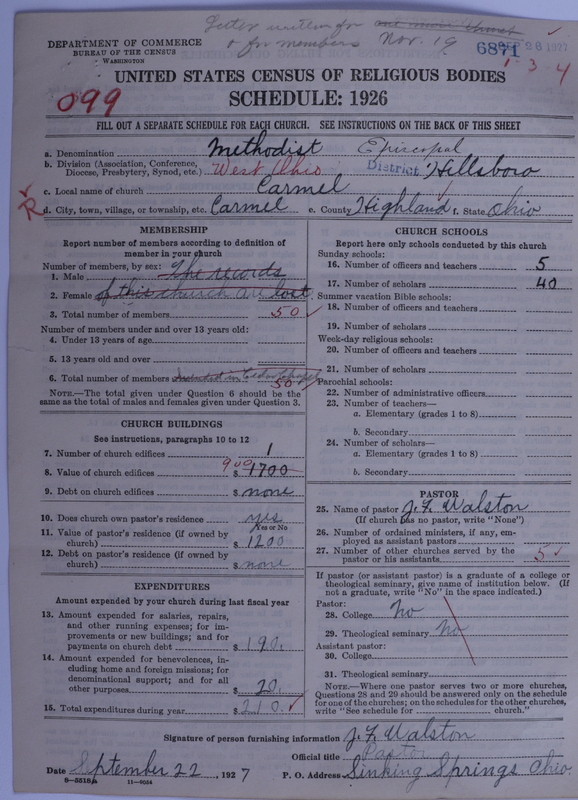 Letter written for one more Church
& for members Nov. 19
DEPARTMENT OF COMMERCE
BUREAU OF THE CENSUS
WASHINGTON
6871
26 1927
1 3 4
UNITED STATES CENSUS OF RELIGIOUS BODIES
SCHEDULE: 1926
099
FILL OUT A SEPARATE SCHEDULE FOR EACH CHURCH. SEE INSTRUCTIONS ON THE BACK OF THIS SHEET
a. Denomination Methodist Episcopal
b. Division (Association, Conference, Diocese, Presbytery, Synod, etc.) West Ohio District Hillsboro
c. Local name of church Carmel
R d. City, town, village, or township, etc. Carmel e. County Highland f. State Ohio
MEMBERSHIP
Report number of members according to definition of
member in your church
Number of members, by sex:
1. Male The records
2. Female of this church are lost
3. Total number of members 50
Number of members under and over 13 years old:
4. Under 13 years of age
5. 13 years old and over
6. Total number of members 50
NOTE.—The total given under Question 6 should be
same as the total of males and females given under Question 3.
CHURCH BUILDINGS
See instructions, paragraphs 10 to 12
7. Number of church edifices 1
8. Value of church edifices 900 $ 1700
9. Debt on church edifices $ none
10. Does church own pastor's residence yes
Yes or No
11. Value of pastor's residence (if owned by
church) $ 1200
12. Debt on pastor's residence (if owned by
church) $ none
EXPENDITURES
Amount expended by your church during last fiscal year
13. Amount expended for salaries, repairs,
and other running expenses; for im-
provements or new buildings; and for
payments on church debt $ 190.
14. Amount expended for benevolences, in-
cluding home and foreign missions; for
denominational support; and for all
other purposes $ 20.
15. Total expenditures during year $ 210.
CHURCH SCHOOLS
Report here only schools conducted by this church
Sunday schools:
16. Number of officers and teachers 5
17. Number of scholars 40
Summer vacation Bible schools:
18. Number of officers and teachers
19. Number of scholars
Week-day religious schools:
20. Number of officers and teachers
21. Number of scholars
Parochial schools:
22. Number of administrative officers
23. Number of teachers—
a. Elementary (grades 1 to 8)
b. Secondary
24. Number of scholars—
a. Elementary (grades 1 to 8)
b. Secondary
PASTOR
25. Name of pastor J. F. Walston
(If church has no pastor, write "None")
26. Number of ordained ministers, if any, em-
ployed as assistant pastors
27. Number of other churches served by the
pastor or his assistants 5
If pastor (or assistant pastor) is a graduate of a college or
theological seminary, give name of institution below. (If
not a graduate, write "No" in the space indicated.)
Pastor:
28. College No
29. Theological seminary No
Assistant pastor:
30. College
31. Theological seminary
NOTE.—Where one pastor serves two or more churches,
Questions 28 and 29 should be answered only on the schedule
for one of the churches; on the schedules for the other churches,
write "See schedule for church."
Signature of person furnishing information J. F. Walston
Official title Pastor
Date September 22, 1927 P. O. Address Sinking Springs Ohio.
8-5518a 11-9064